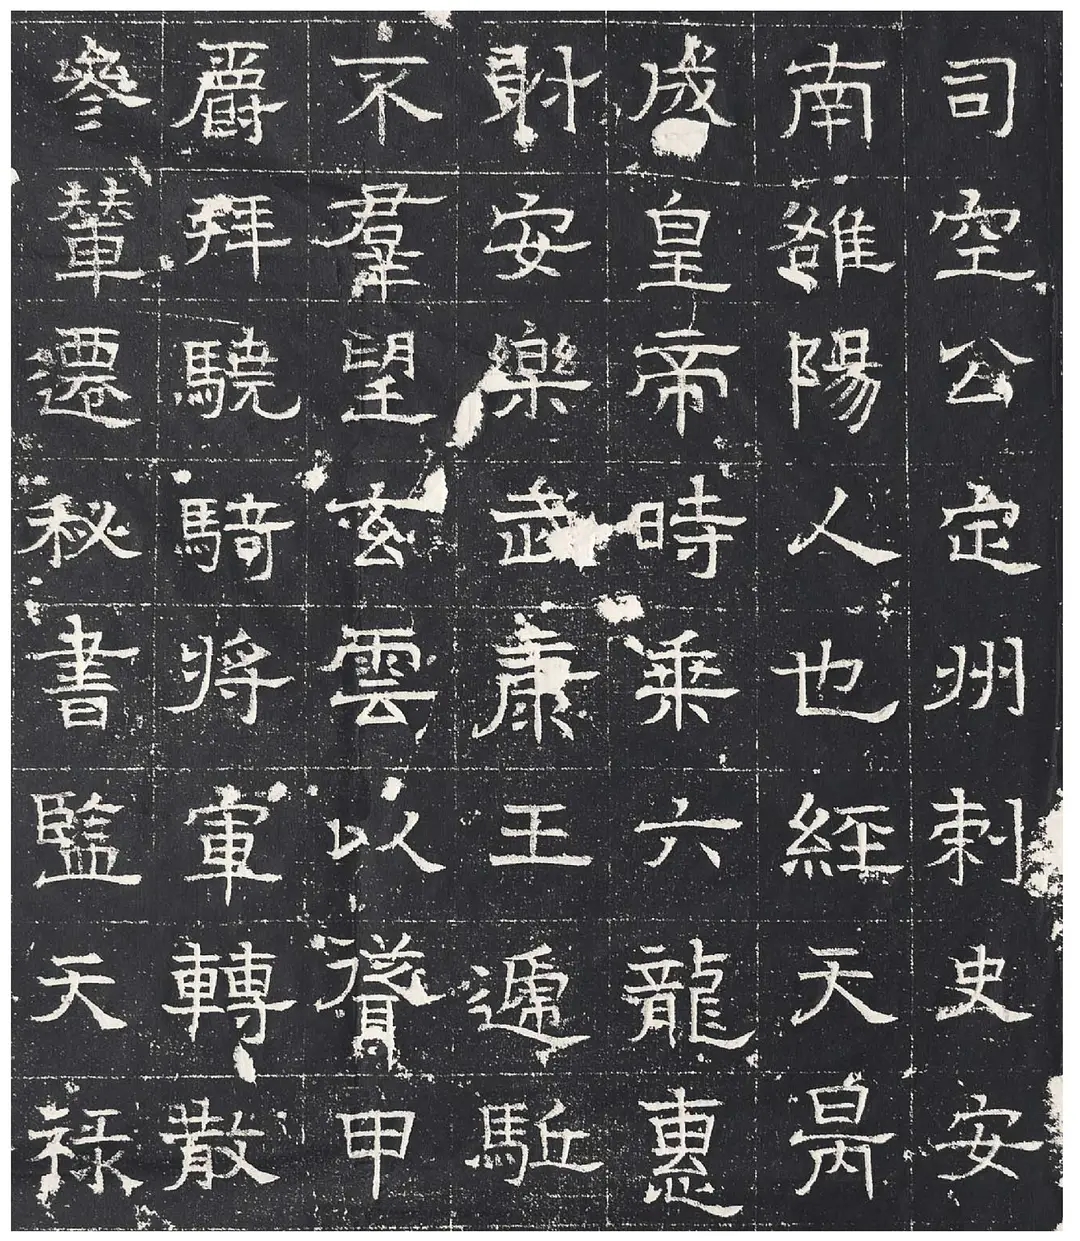 司空公定州刺史安
南雒陽人也經天昺
成皇帝時乘六龍惠
財安樂武康王遞駈
不羣望玄雲以甲
爵拜驍騎將軍轉散
參輦遷秘書監天祿